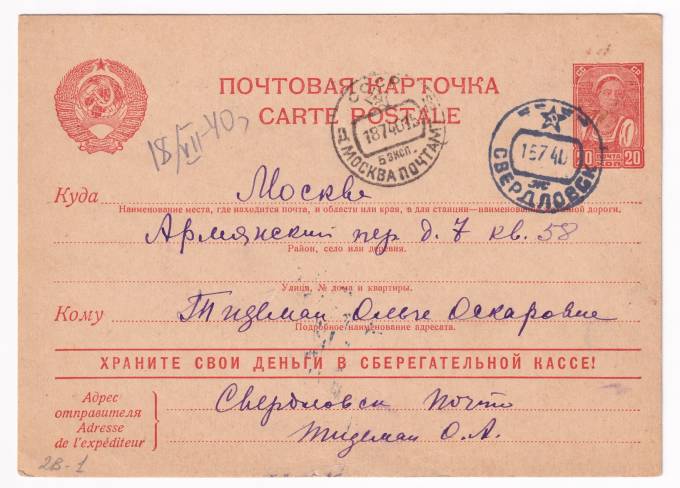 ПОЧТОВАЯ КАРТОЧКА
CARTE POSTALE
18/VII-40
18740
МОСКВА ПОЧТАМТ
5 ЭКСП.
15 7 40
СВЕРДЛОВСК
20 ПОЧТА 20
КОП
Куда Москва
Наименование места, где находится почта, и области или края, а для станции—наименование железной дороги.
Армянский пер д. 7 кв. 58
Район, село или деревня.
Улица, № дома и квартиры.
Кому Тидеман Ольге Оскаровне
Подробное наименование адресата.
ХРАНИТЕ СВОИ ДЕНЬГИ В СБЕРЕГАТЕЛЬНОЙ КАССЕ!
Адрес
отправителя
Adresse
de l'expéditeur
Свердловск Почта
Тидеман О.А.
2В-1